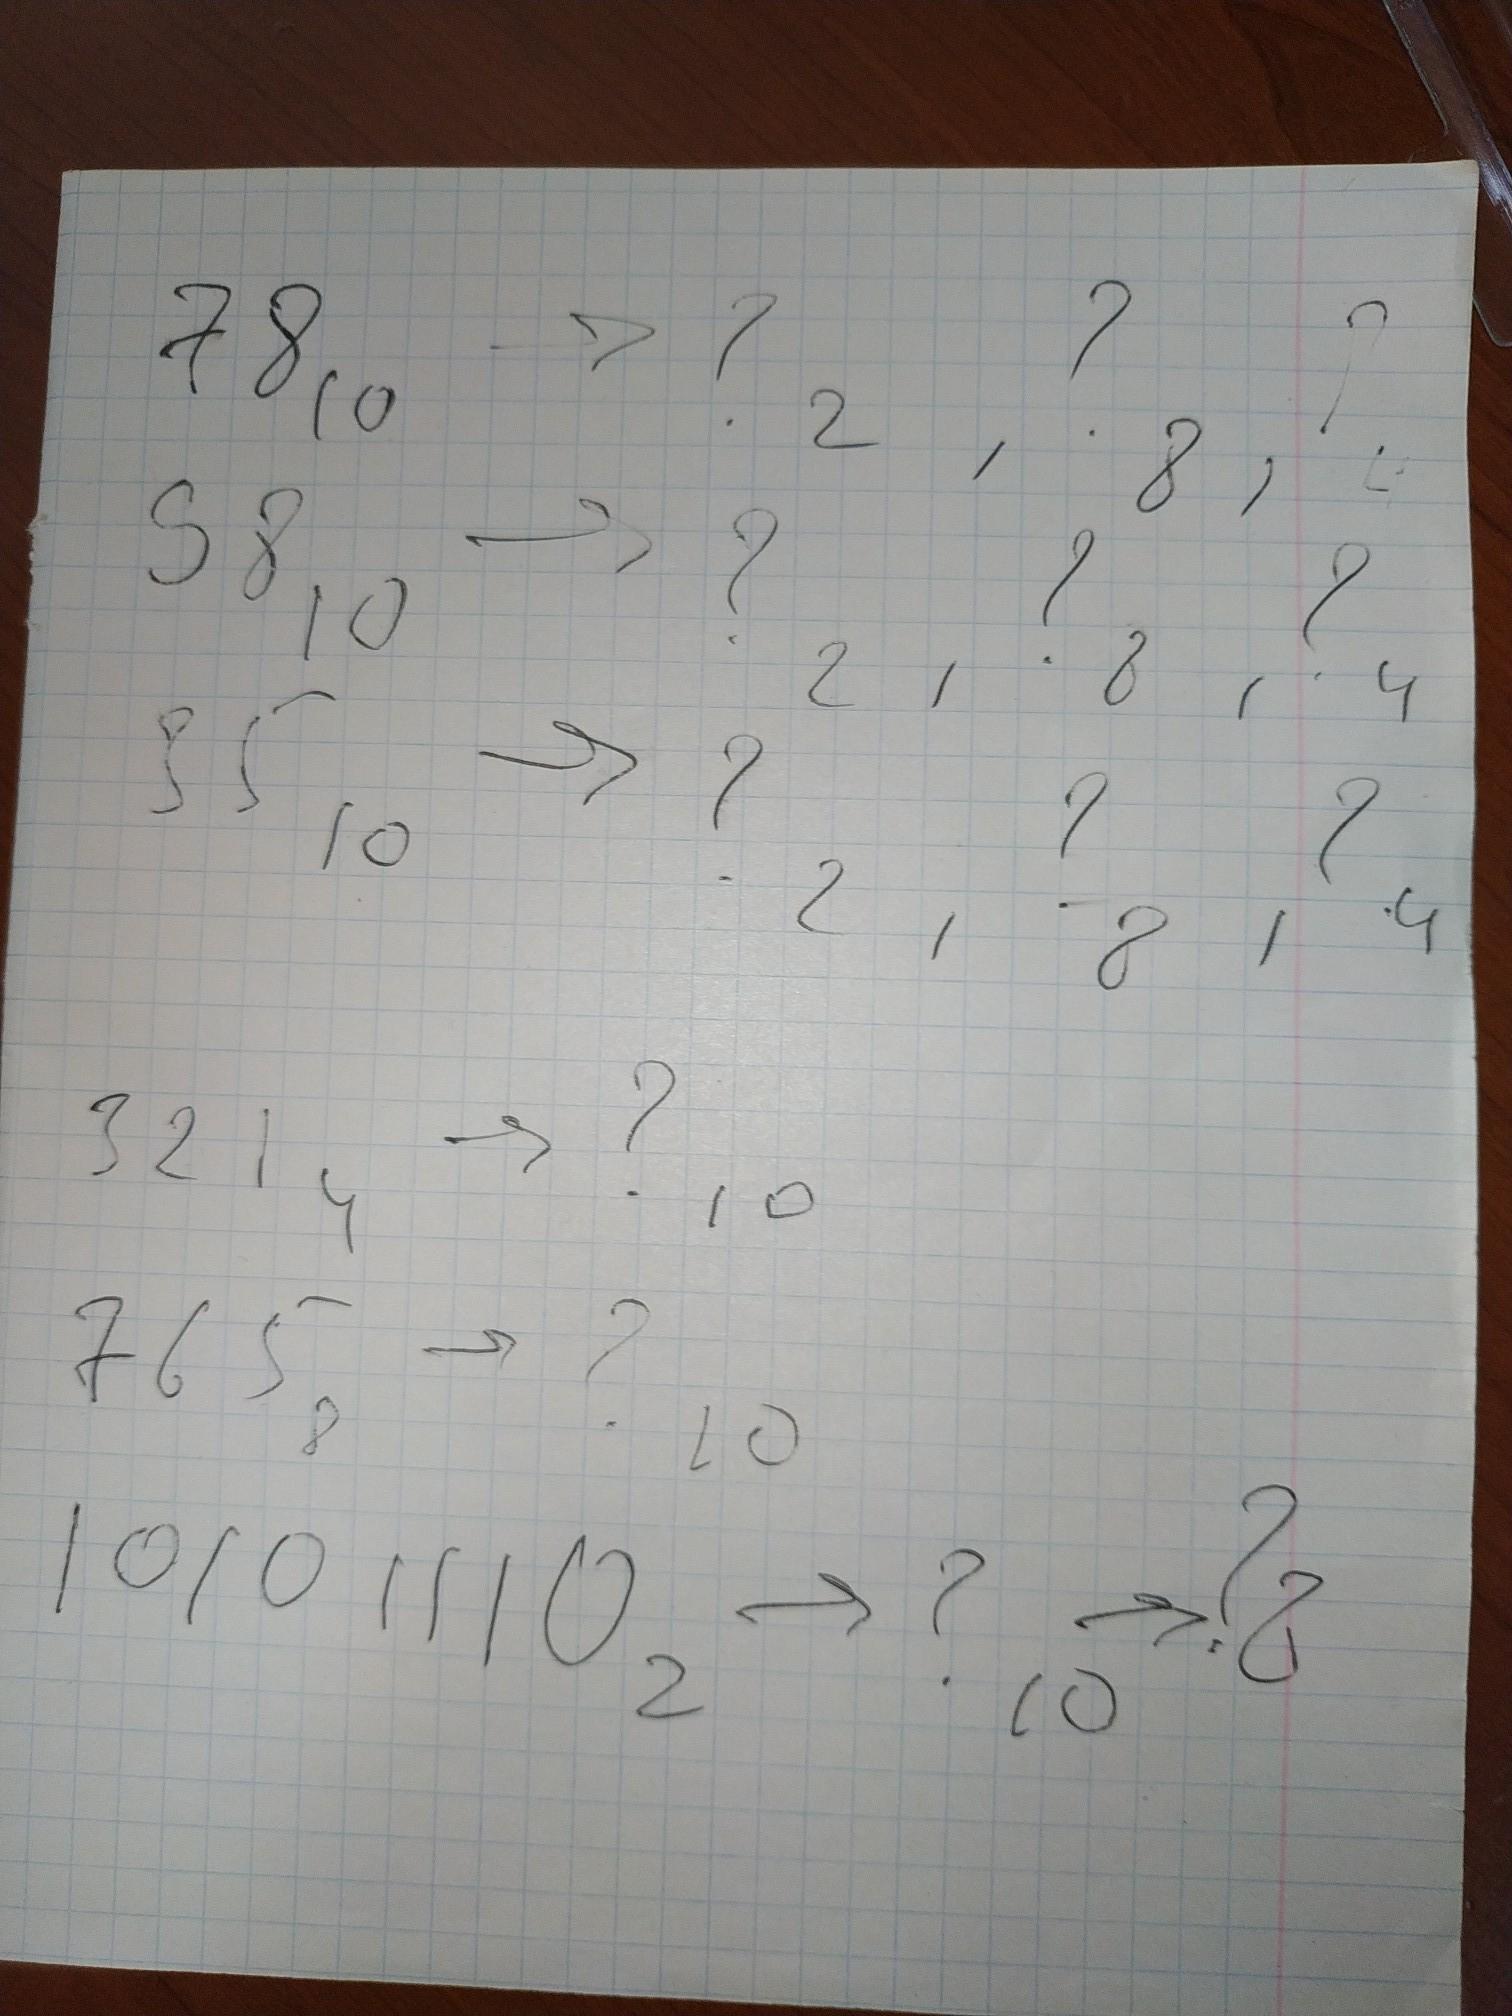 78₁₀ → ?₂, ?₈, ?₄
98₁₀ → ?₂, ?₈, ?₄
35₁₀ → ?₂, ?₈, ?₄
321₄ → ?₁₀
765₈ → ?₁₀
10101110₂ → ?₁₀ → ?₈